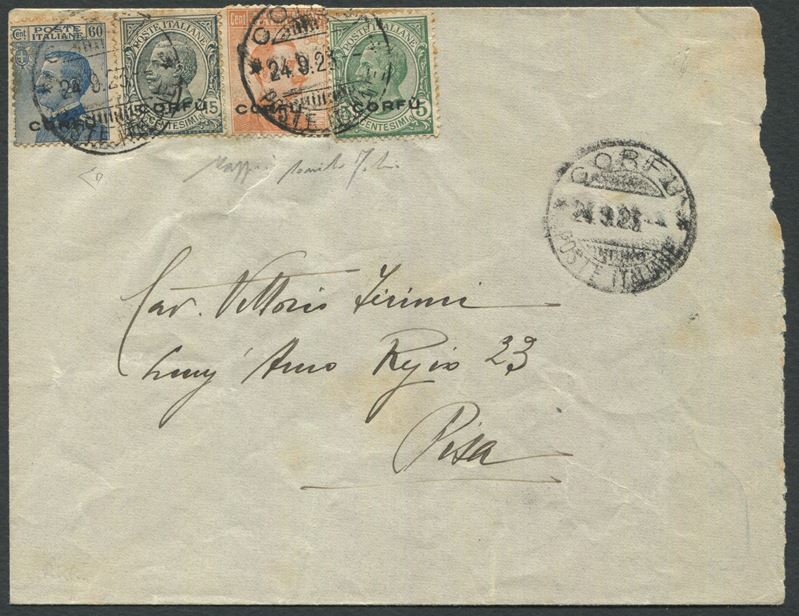 Cent 60
POSTE ITALIANE
CORFÙ
POSTE ITALIANE 15
CORFÙ
CENTESIMI
Cent
CORFÙ
POSTE ITALIANE
CORFÙ 5
CENTESIMI
24.9.23
POSTE ITALIANE
CORFU
24.9.23
POSTE ITALIANE
CORFU
24.9.23
POSTE ITALIANE
Cav. Vittorio
Lung' Arno Regio 23
Pisa